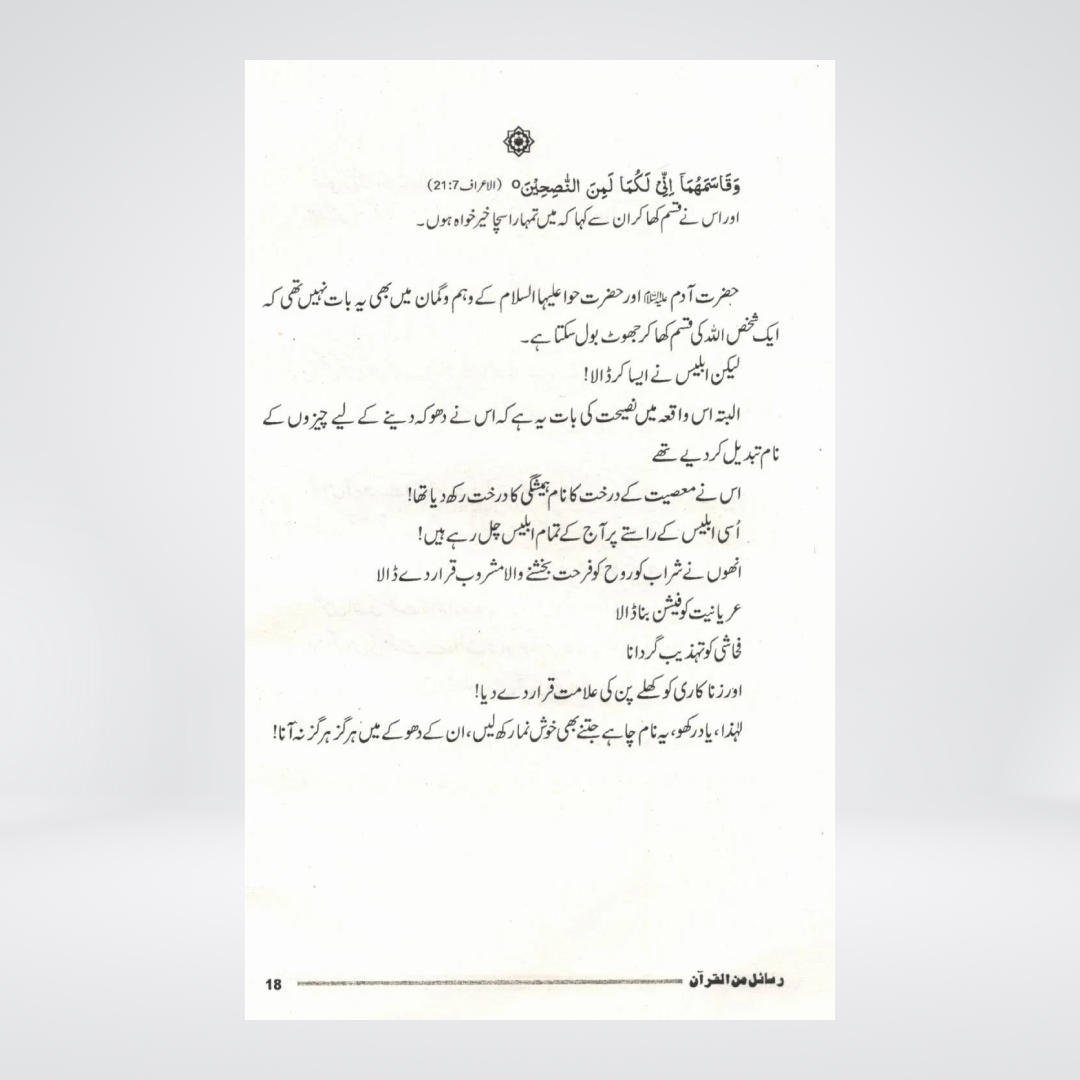 وَقَاسَمَهُمَآ اِنِّىْ لَكُمَا لَمِنَ النّٰصِحِيْنَo (الاعراف 21:7)
اور اس نے قسم کھا کر ان سے کہا کہ میں تمہارا سچا خیر خواہ ہوں۔
حضرت آدم علیہ السلام اور حضرت حوا علیہا السلام کے وہم و گمان میں بھی یہ بات نہیں تھی کہ
ایک شخص اللہ کی قسم کھا کر جھوٹ بول سکتا ہے۔
لیکن ابلیس نے ایسا کر ڈالا!
البتہ اس واقعہ میں نصیحت کی بات یہ ہے کہ اس نے دھوکہ دینے کے لیے چیزوں کے
نام تبدیل کر دیے تھے
اس نے معصیت کے درخت کا نام ہمیشگی کا درخت رکھ دیا تھا!
اُسی ابلیس کے راستے پر آج کے تمام ابلیس چل رہے ہیں!
انھوں نے شراب کو روح کو فرحت بخشنے والا مشروب قرار دے ڈالا
عریانیت کو فیشن بنا ڈالا
فحاشی کو تہذیب گردانا
اور زنا کاری کو کھلے پن کی علامت قرار دے دیا!
لہٰذا، یاد رکھو، یہ نام چاہے جتنے بھی خوش نما رکھ لیں، ان کے دھوکے میں ہرگز ہرگز نہ آنا!
رسائل من القرآن 18